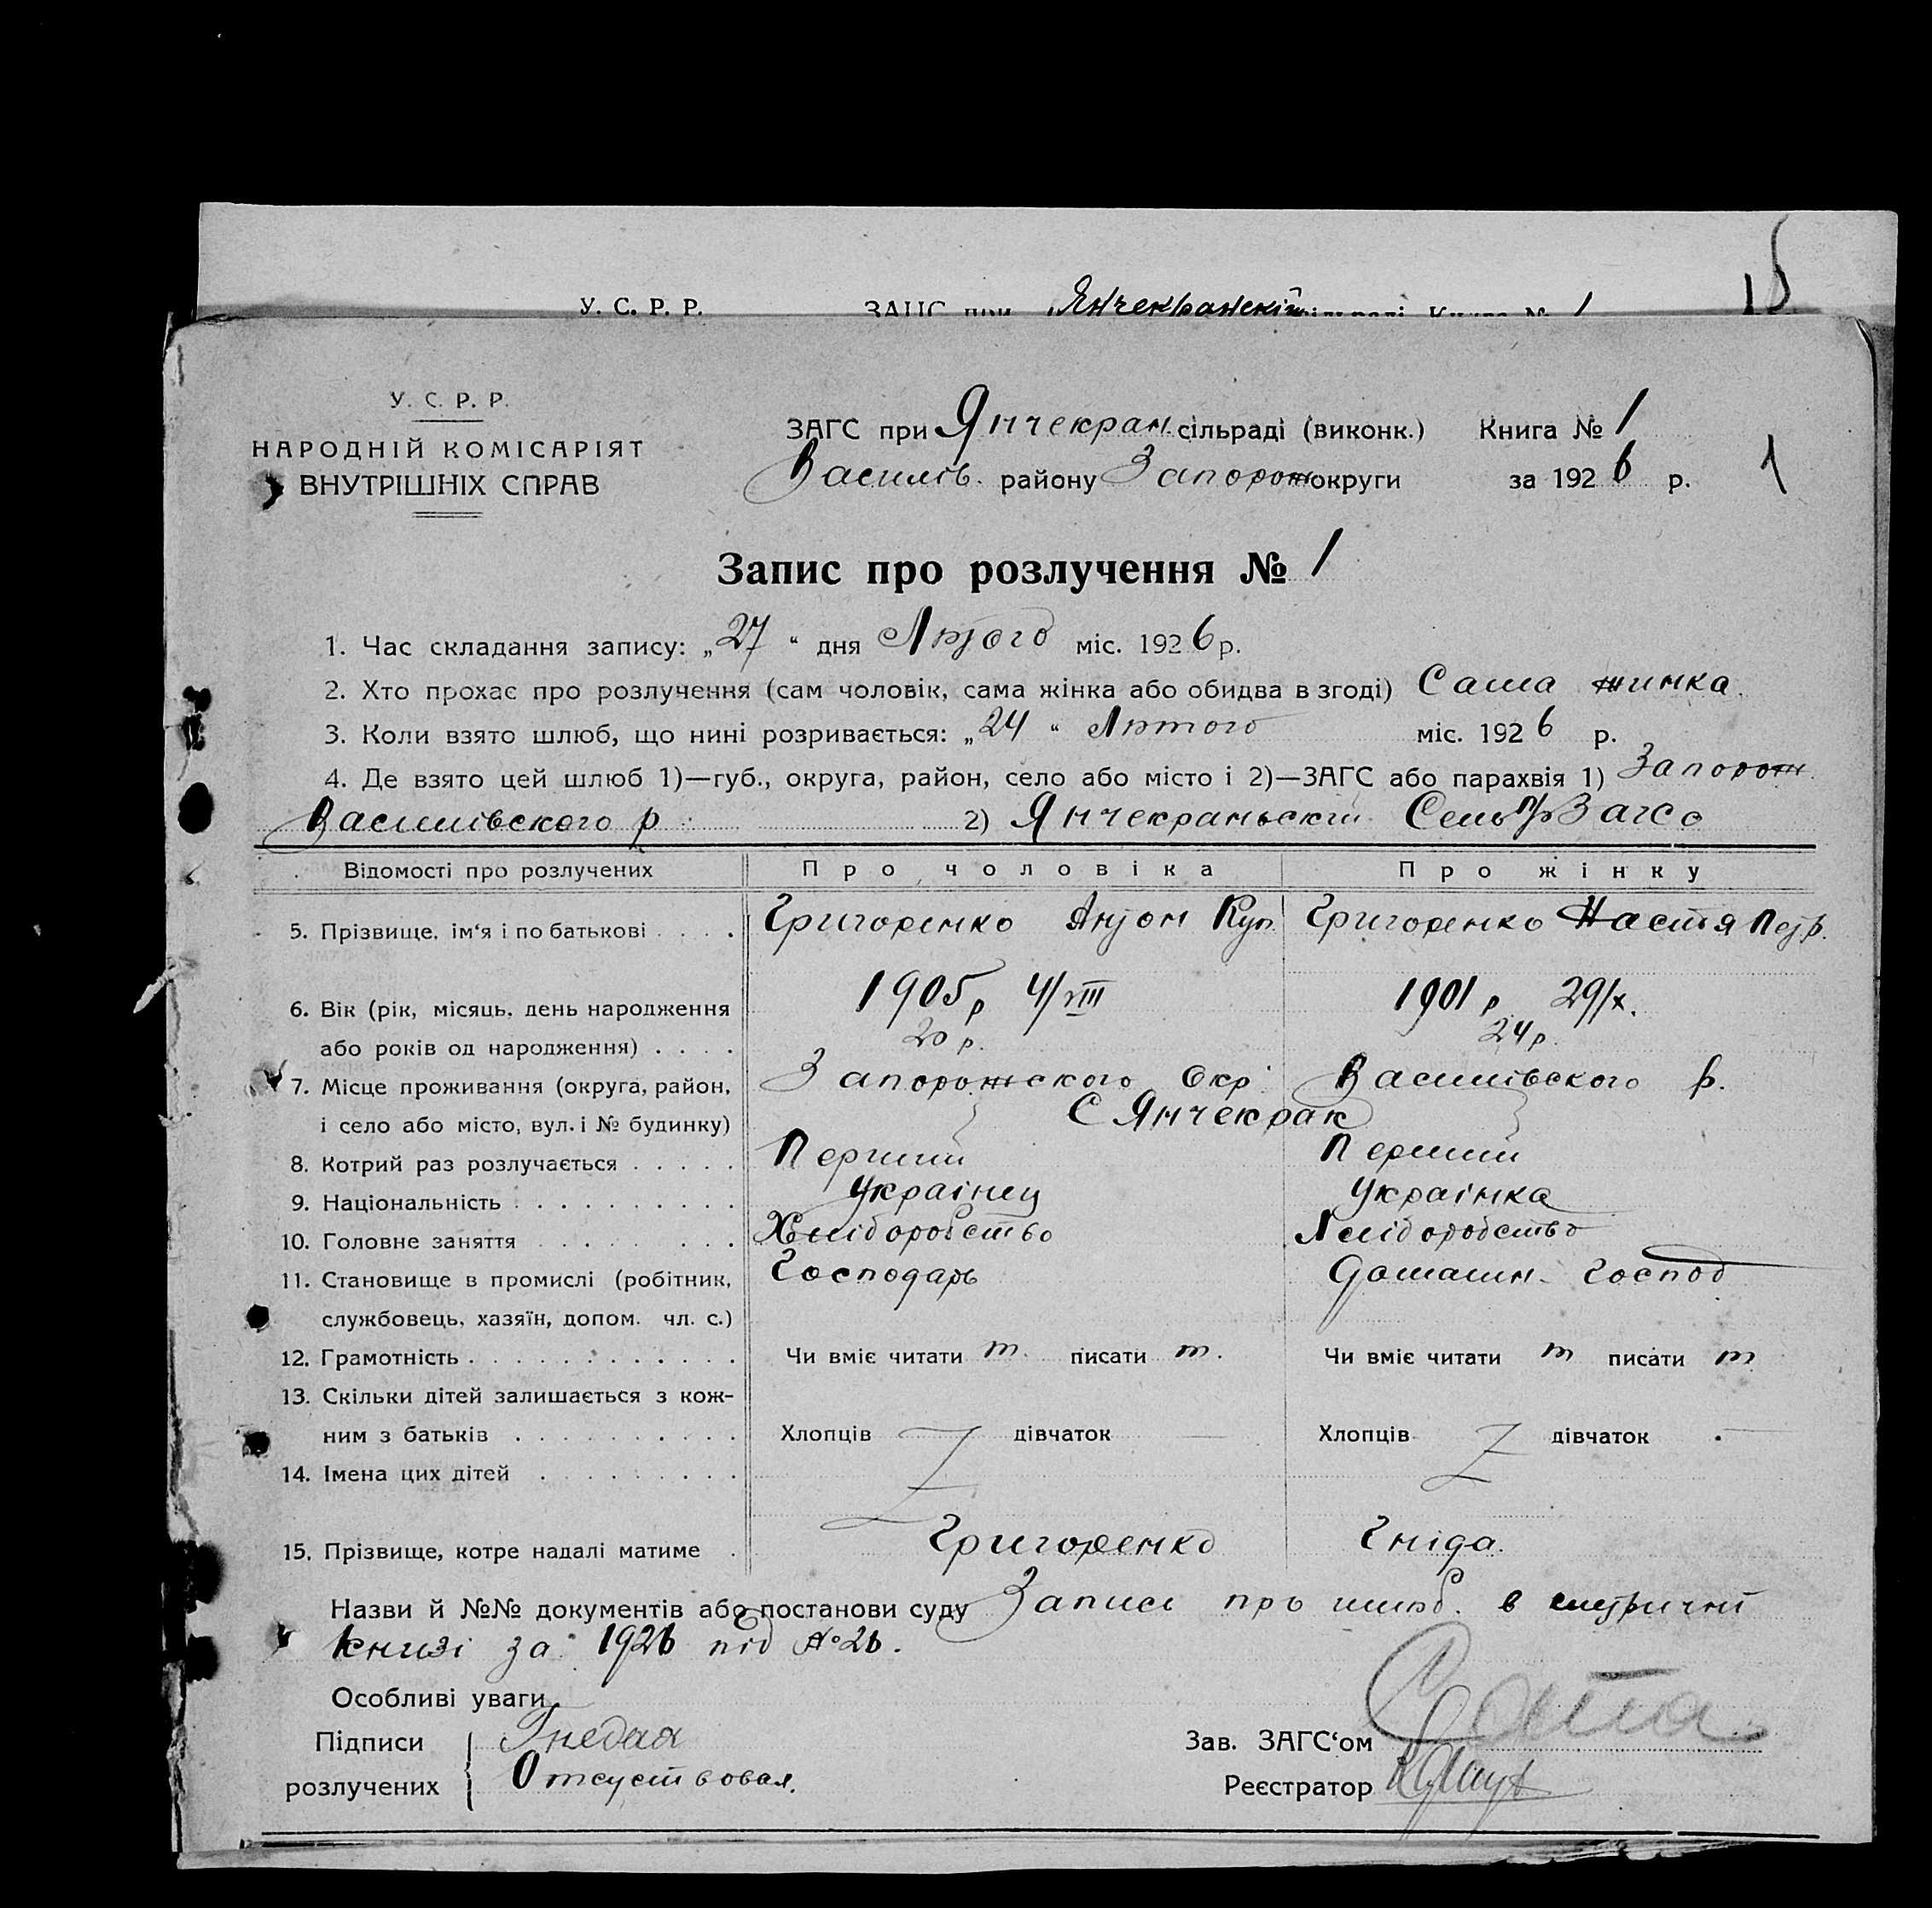 15
У. С. Р. Р. ЗАГС при Янчекранскій сільраді Книга № 1
У. С. Р. Р.
НАРОДНІЙ КОМІСАРІЯТ
ВНУТРІШНІХ СПРАВ
ЗАГС при Янчекран. сільраді (виконк.) Книга № 1
Василів. району Запорож округи за 1926 р. 1
Запис про розлучення № 1
1. Час складання запису: „27“ дня Лютого міс. 1926 р.
2. Хто прохає про розлучення (сам чоловік, сама жінка або обидва в згоді) Сама жинка.
3. Коли взято шлюб, що нині розривається: „24“ Лютого міс. 1926 р.
4. Де взято цей шлюб 1)—губ., округа, район, село або місто і 2)—ЗАГС або парахвія 1) Запорож.
Василівского р 2) Янчекраньскій Загсо
Відомості про розлучених Про чоловіка Про жінку
5. Прізвище, ім‘я і по батькові . . . . Григоренко Антон Куп. Григоренко Настя Петр.
6. Вік (рік, місяць, день народження 1905 р 4/VIII 1901 р 29/X.
або років од народження) . . . . 20 р. 24 р.
7. Місце проживання (округа, район, Запорожского Окр. Василівского р.
і село або місто, вул. і № будинку) С Янчекрак
8. Котрий раз розлучається . . . . . Перший Перший
9. Національність . . . . . . . . . . Украінец Украінка
10. Головне заняття . . . . . . . Хліборобство Хліборобство
11. Становище в промислі (робітник, Господарь Домашн. Господ
службовець, хазяїн, допом. чл. с.)
12. Грамотність . . . . . . . . . . . . Чи вміє читати т. писати т. Чи вміє читати т писати т
13. Скільки дітей залишається з кож-
ним з батьків . . . . . . . . . . Хлопців — дівчаток — Хлопців дівчаток —
14. Імена цих дітей . . . . . . . . .
15. Прізвище, котре надалі матиме . Григоренко Гніда.
Назви й №№ документів або постанови суду Записі про шлюб. в метричній
книзі за 1926 під №26.
Особливі уваги
Підписи Гнедая
розлучених Отсуствовал.
Зав. ЗАГС‘ом
Реєстратор